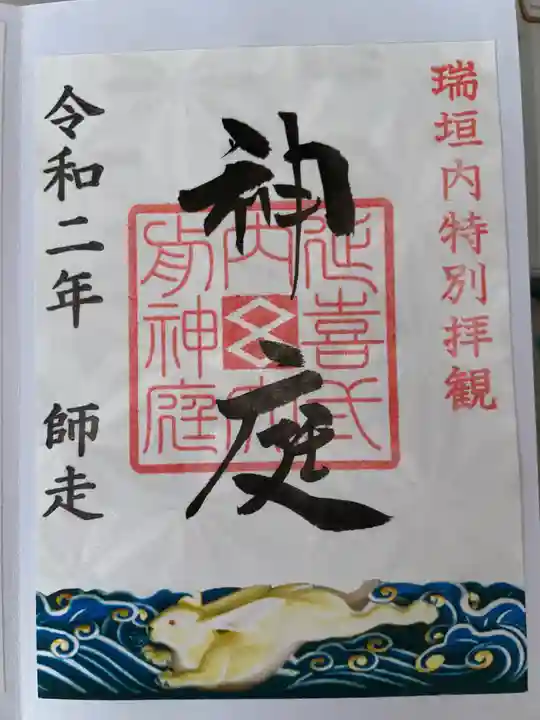 瑞垣内特別拝観
神庭
延喜式
神庭
令和二年 師走